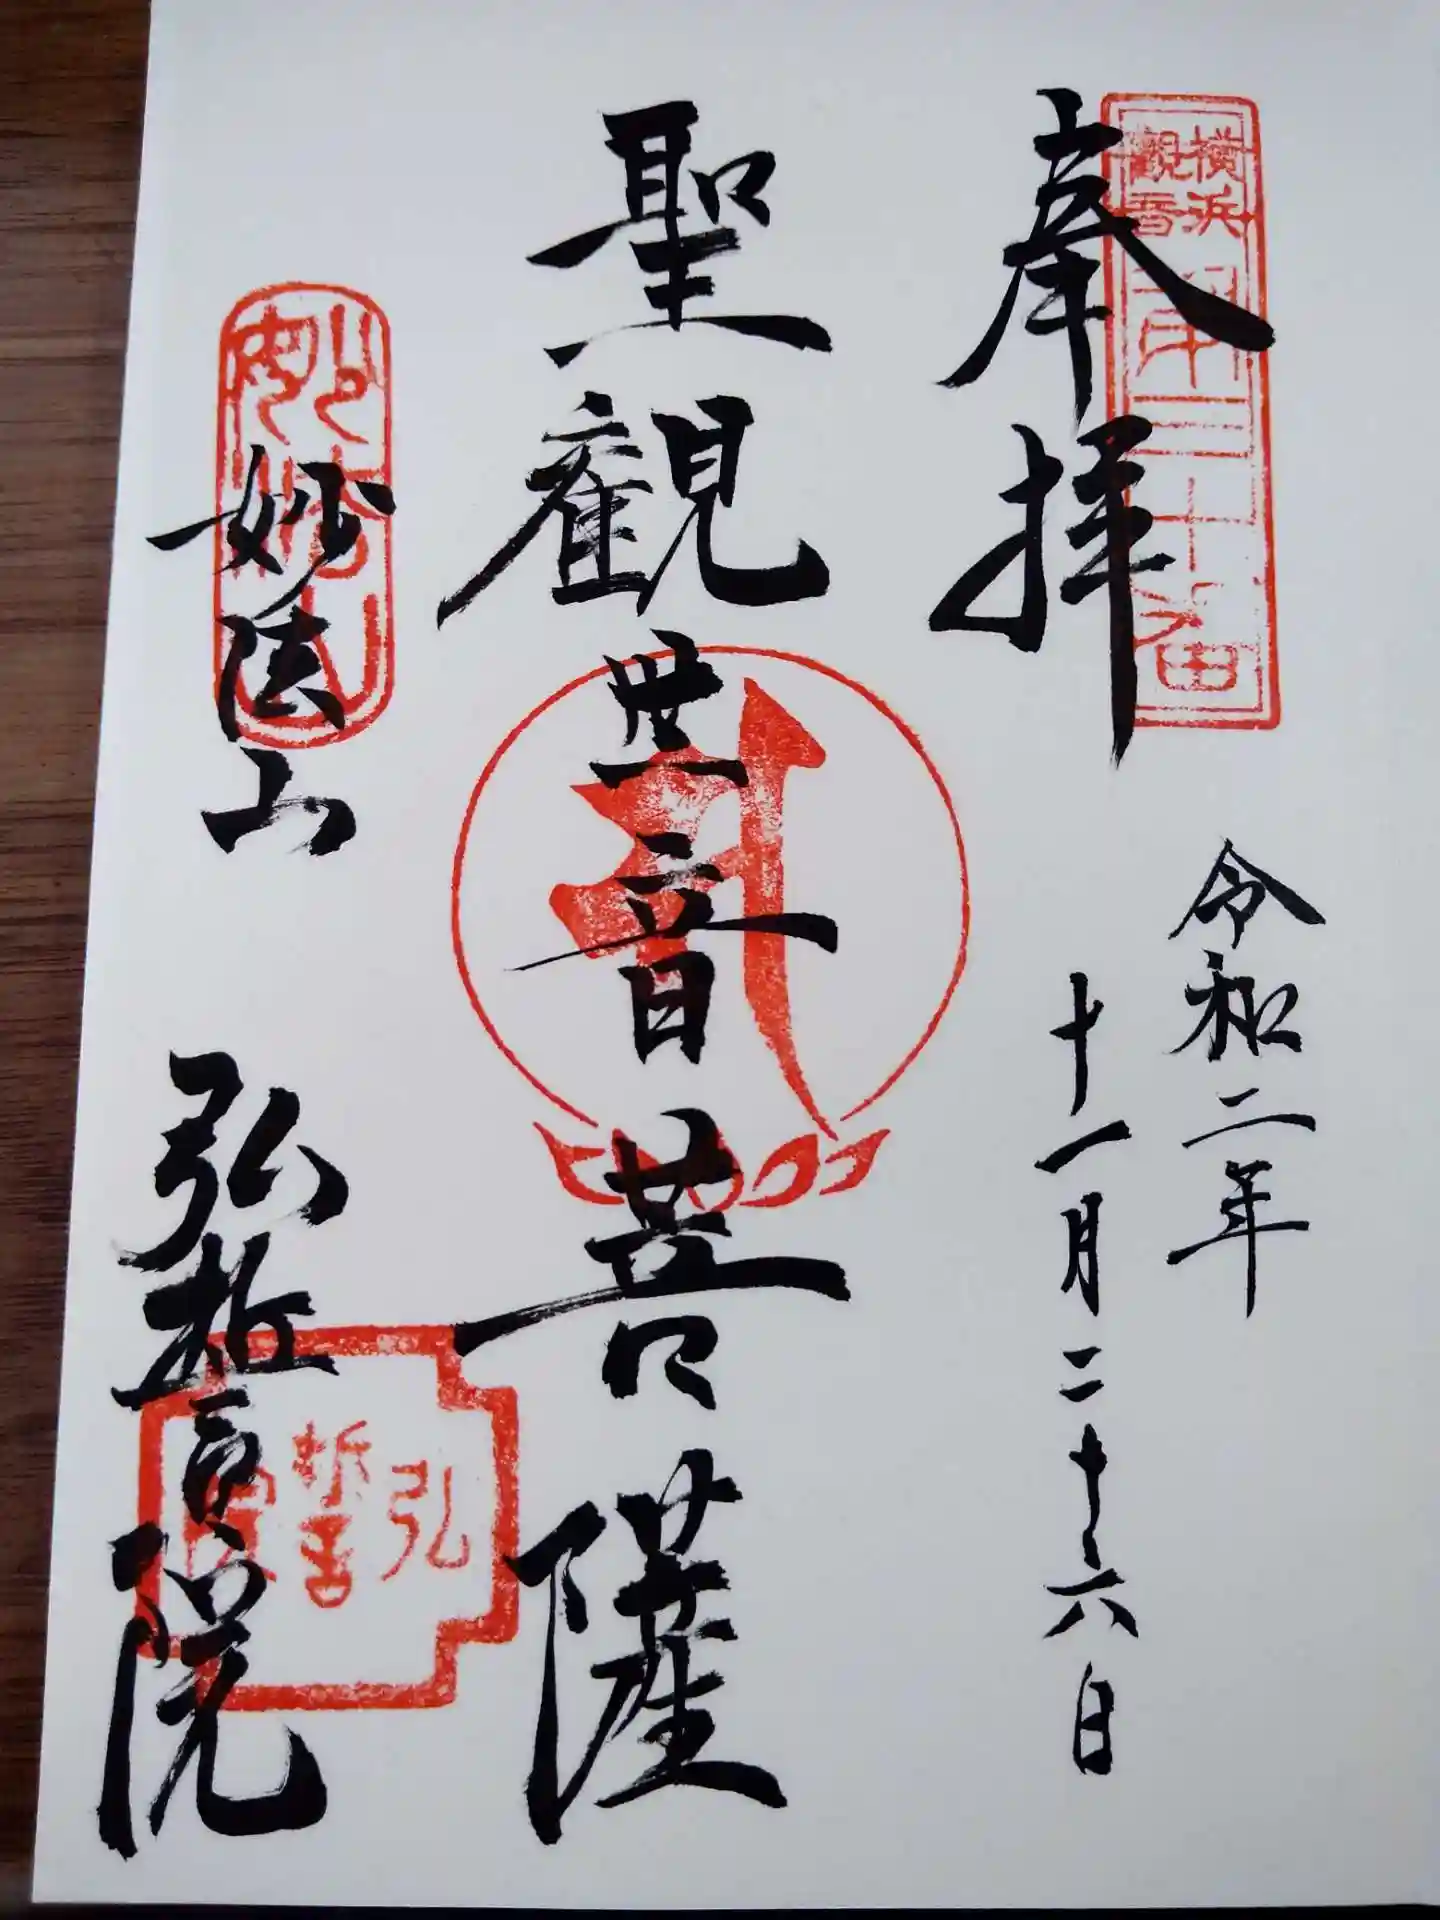 横浜
觀音
第三十番
奉拝
令和二年
十一月二十六日
聖觀世音菩薩
妙法山
妙法山
弘誓院
弘
誓
院